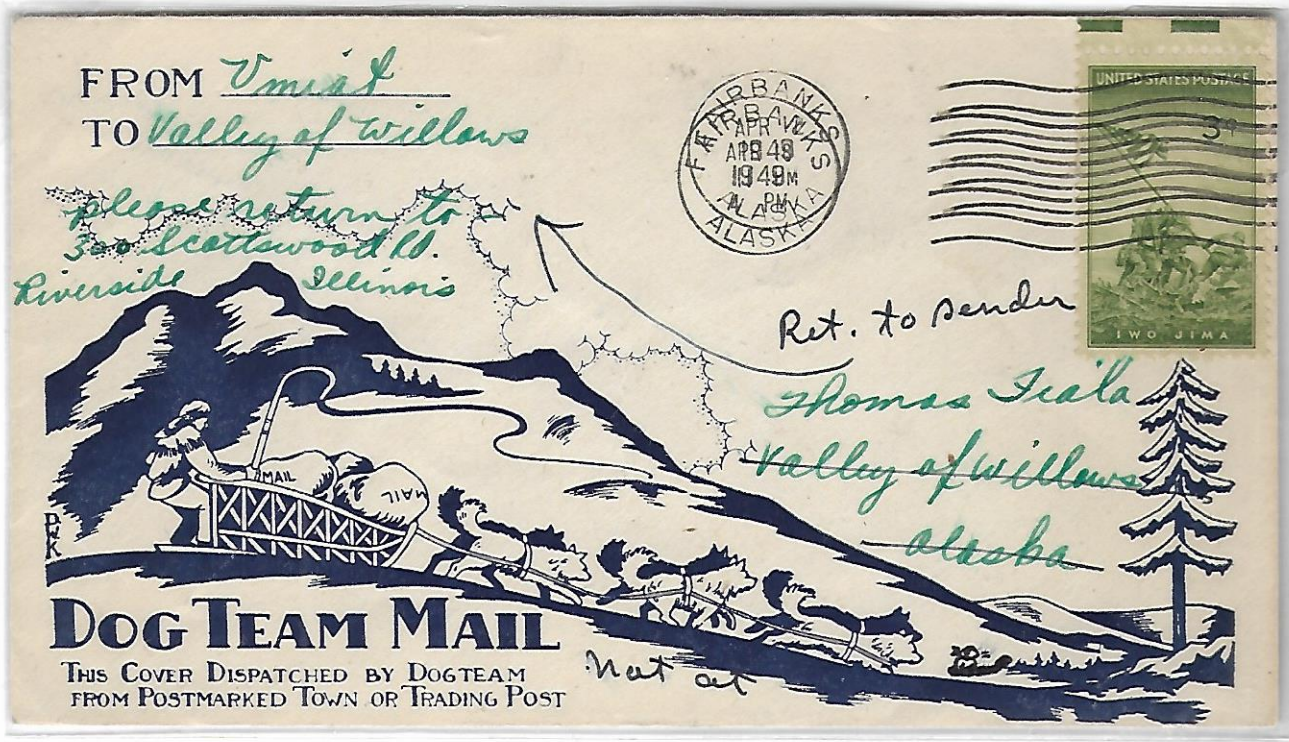 FROM Umiat
TO Valley of Willows
please return to
300 Scottswood Rd.
Riverside Illinois
FAIRBANKS
APR
1949
PM
ALASKA
UNITED STATES POSTAGE
3¢
IWO JIMA
Ret. to sender
Thomas Fiala
Valley of Willows
Alaska
MAIL
MAIL
DOG TEAM MAIL
THIS COVER DISPATCHED BY DOGTEAM
FROM POSTMARKED TOWN OR TRADING POST
Not at